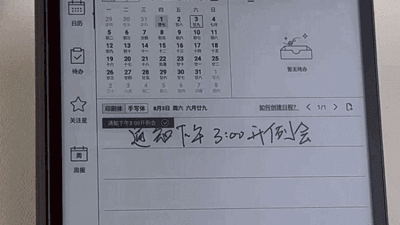 日历
待办
关注星
周
周报
一 二 三 四 五 六 日
29 30 31 1 2 3 4
5 6 7 8 9 10 11
12 13 14 15 16 17 18
19 20 21 22 23 24 25
26 27 28 29 30 31 1
暂无待办
印刷体 手写体 8月3日 周六 六月廿九 如何创建日程? < 1/1 >
通知下午3:00开例会
通知下午3:00开例会